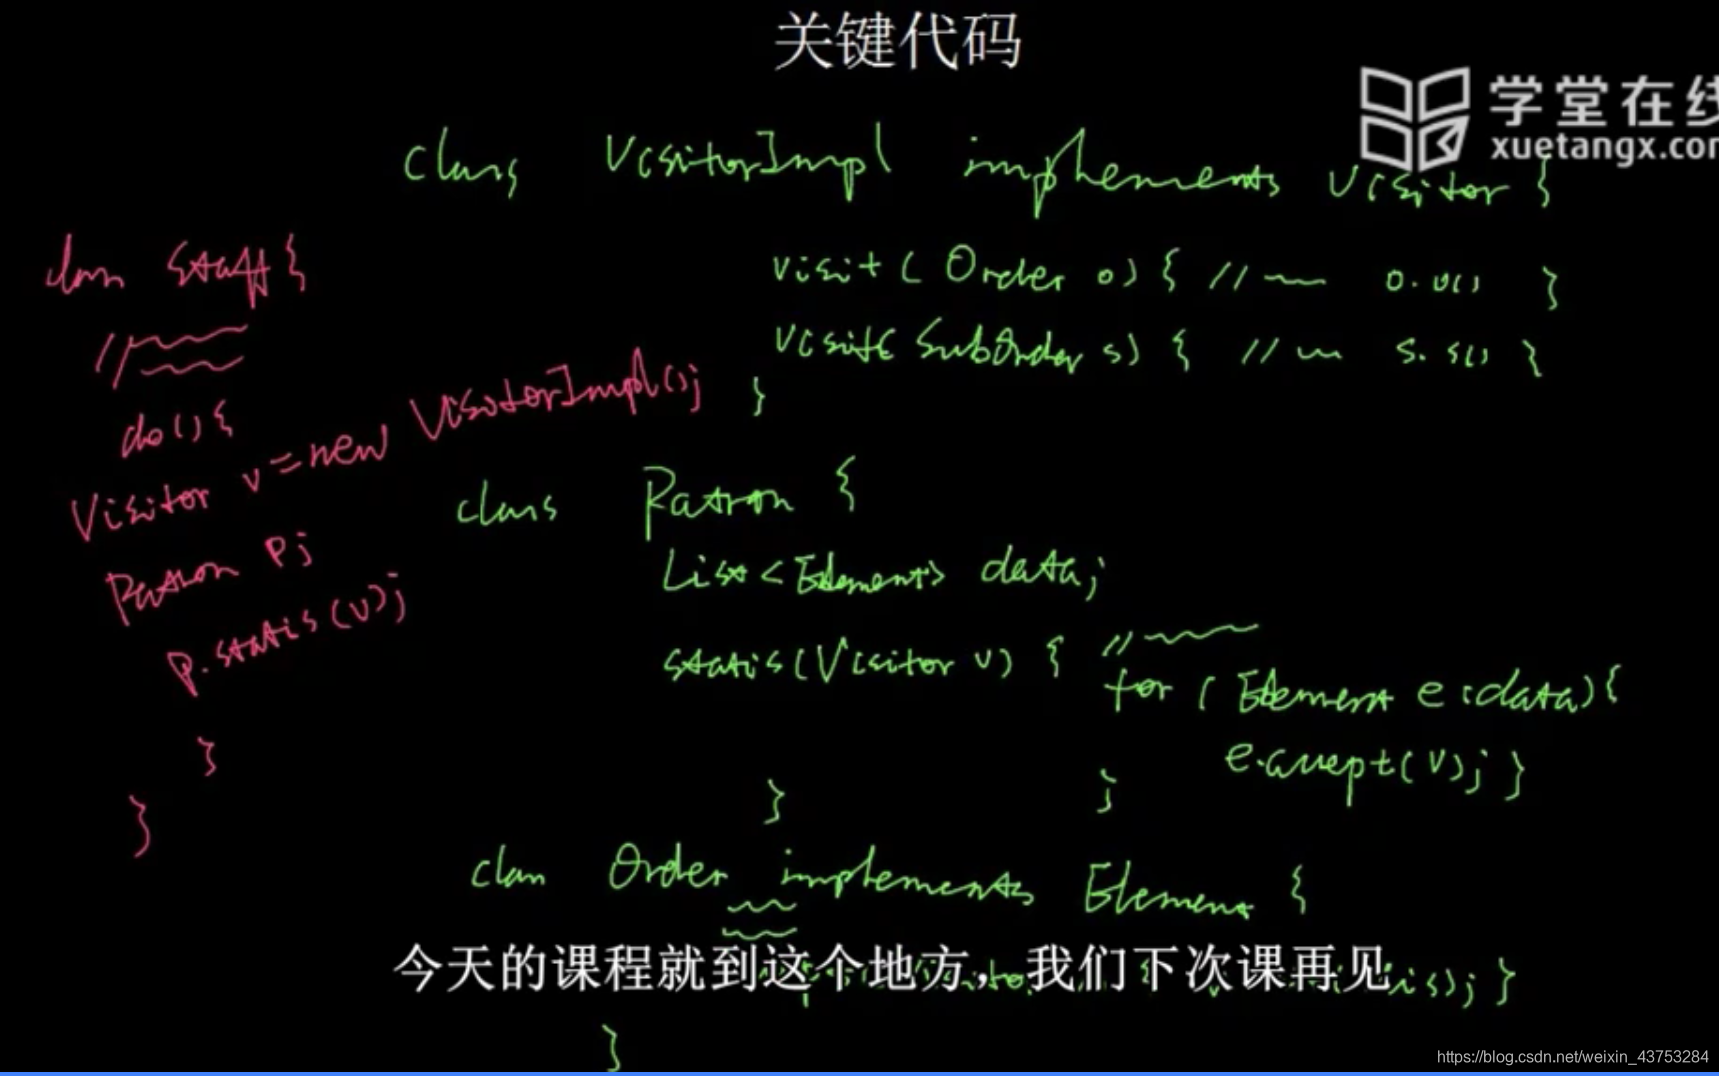 关键代码
学堂在线
xuetangx.com
class VisitorImpl implements Visitor {
visit( Order o) { // o.o() }
visit( SubOrder s) { // s.s() }
}
class Staff {
//
do() {
Visitor v = new VisitorImpl();
Patron p;
p.statis(v);
}
}
class Patron {
List<Element> data;
statis(Visitor v) { //
for ( Element e : data) {
e.accept(v); }
}
}
class Order implements Element {
今天的课程就到这个地方，我们下次课再见
is); }
}
https://blog.csdn.net/weixin_43753284